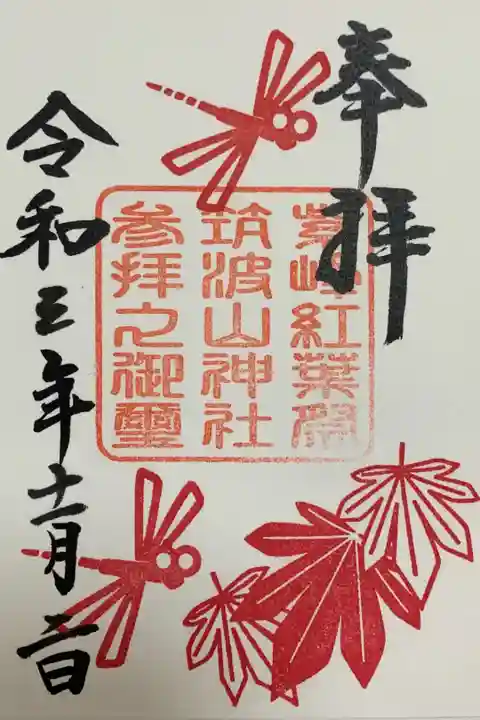 奉拝
紫峰紅葉閣
筑波山神社
参拝之御璽
令和三年十一月三日